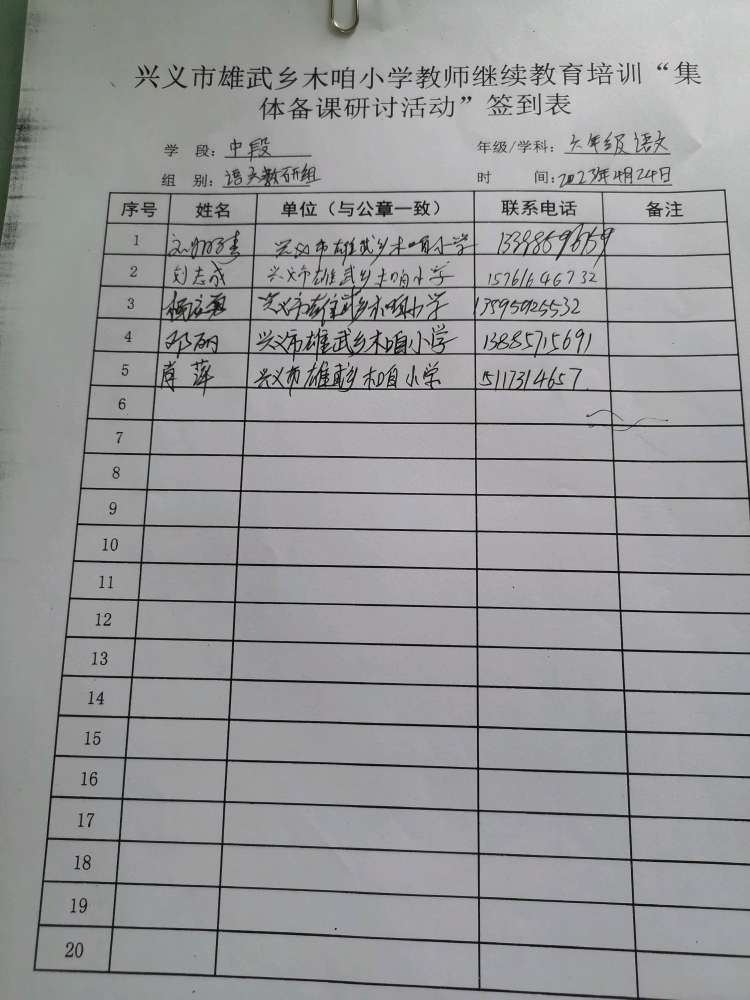 兴义市雄武乡木咱小学教师继续教育培训“集
体备课研讨活动”签到表
学 段：中段 年级/学科：六年级语文
组 别：语文教研组 时 间：2023年4月24日
序号 姓名 单位（与公章一致） 联系电话 备注
1 兴义市雄武乡木咱小学
2 刘志成 兴义市雄武乡木咱小学 15761646732
3 兴义市雄武乡木咱小学 13595925532
4 邓丽 兴义市雄武乡木咱小学 13885715691
5 肖萍 兴义市雄武乡木咱小学 5117314657
6
7
8
9
10
11
12
13
14
15
16
17
18
19
20